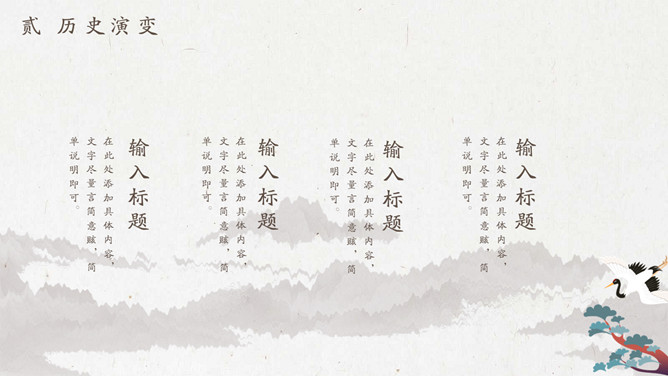 贰 历史演变
输入标题
在此处添加具体内容，
文字尽量言简意赅，简
单说明即可。
输入标题
在此处添加具体内容，
文字尽量言简意赅，简
单说明即可。
输入标题
在此处添加具体内容，
文字尽量言简意赅，简
单说明即可。
输入标题
在此处添加具体内容，
文字尽量言简意赅，简
单说明即可。